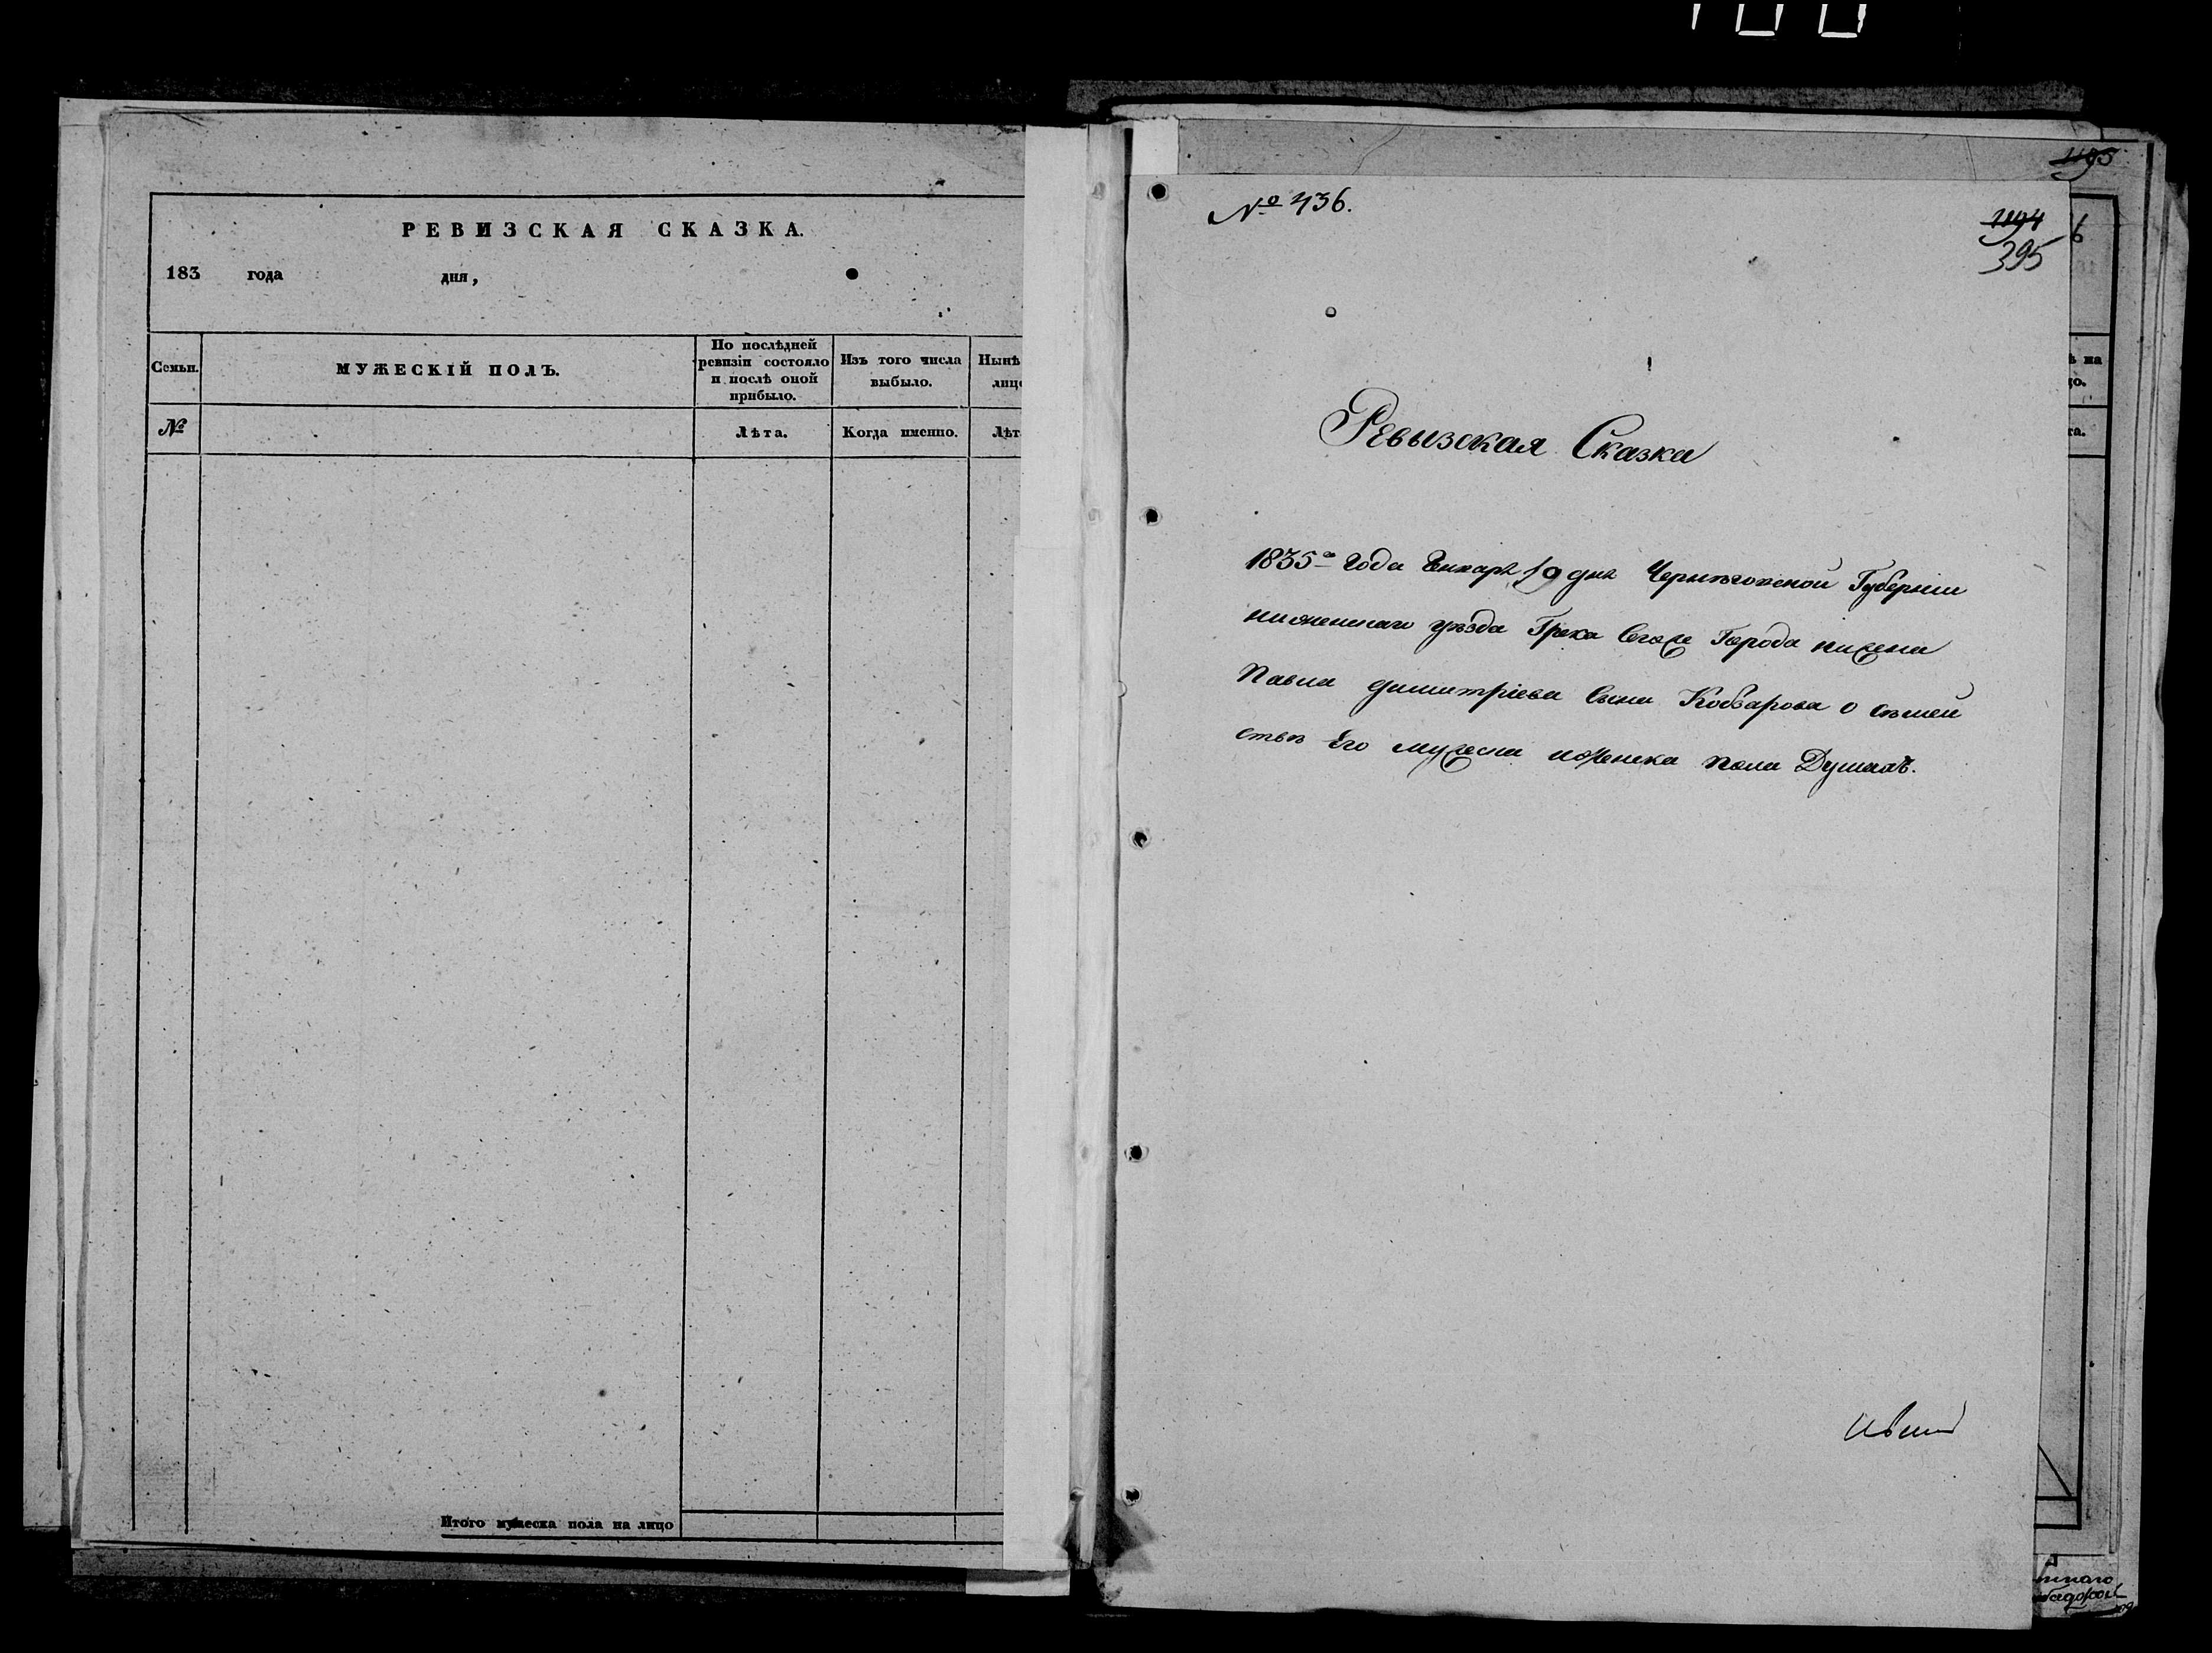 РЕВИЗСКАЯ СКАЗКА.
183 года дня,
Семьи.
МУЖЕСКІЙ ПОЛЪ.
По послѣдней
ревизіи состояло
и послѣ оной
прибыло.
Изъ того числа
выбыло.
Нынѣ
лицо
№
Лѣта.
Когда именно.
Лѣт
Итого мужеска пола на лицо
№ 436.
1195
1194
395
Ревызская Сказка
1835го Года Генваря 10 дня Чернѣговской Губерніи
нѣженскаго уѣзда Грека Сегоже Города нѣжена
Павла димитріева Сына Кобзарова о сѣмей
ствѣ Его мужеска иженска пола Душахъ.
ѣ на
цо.
та.